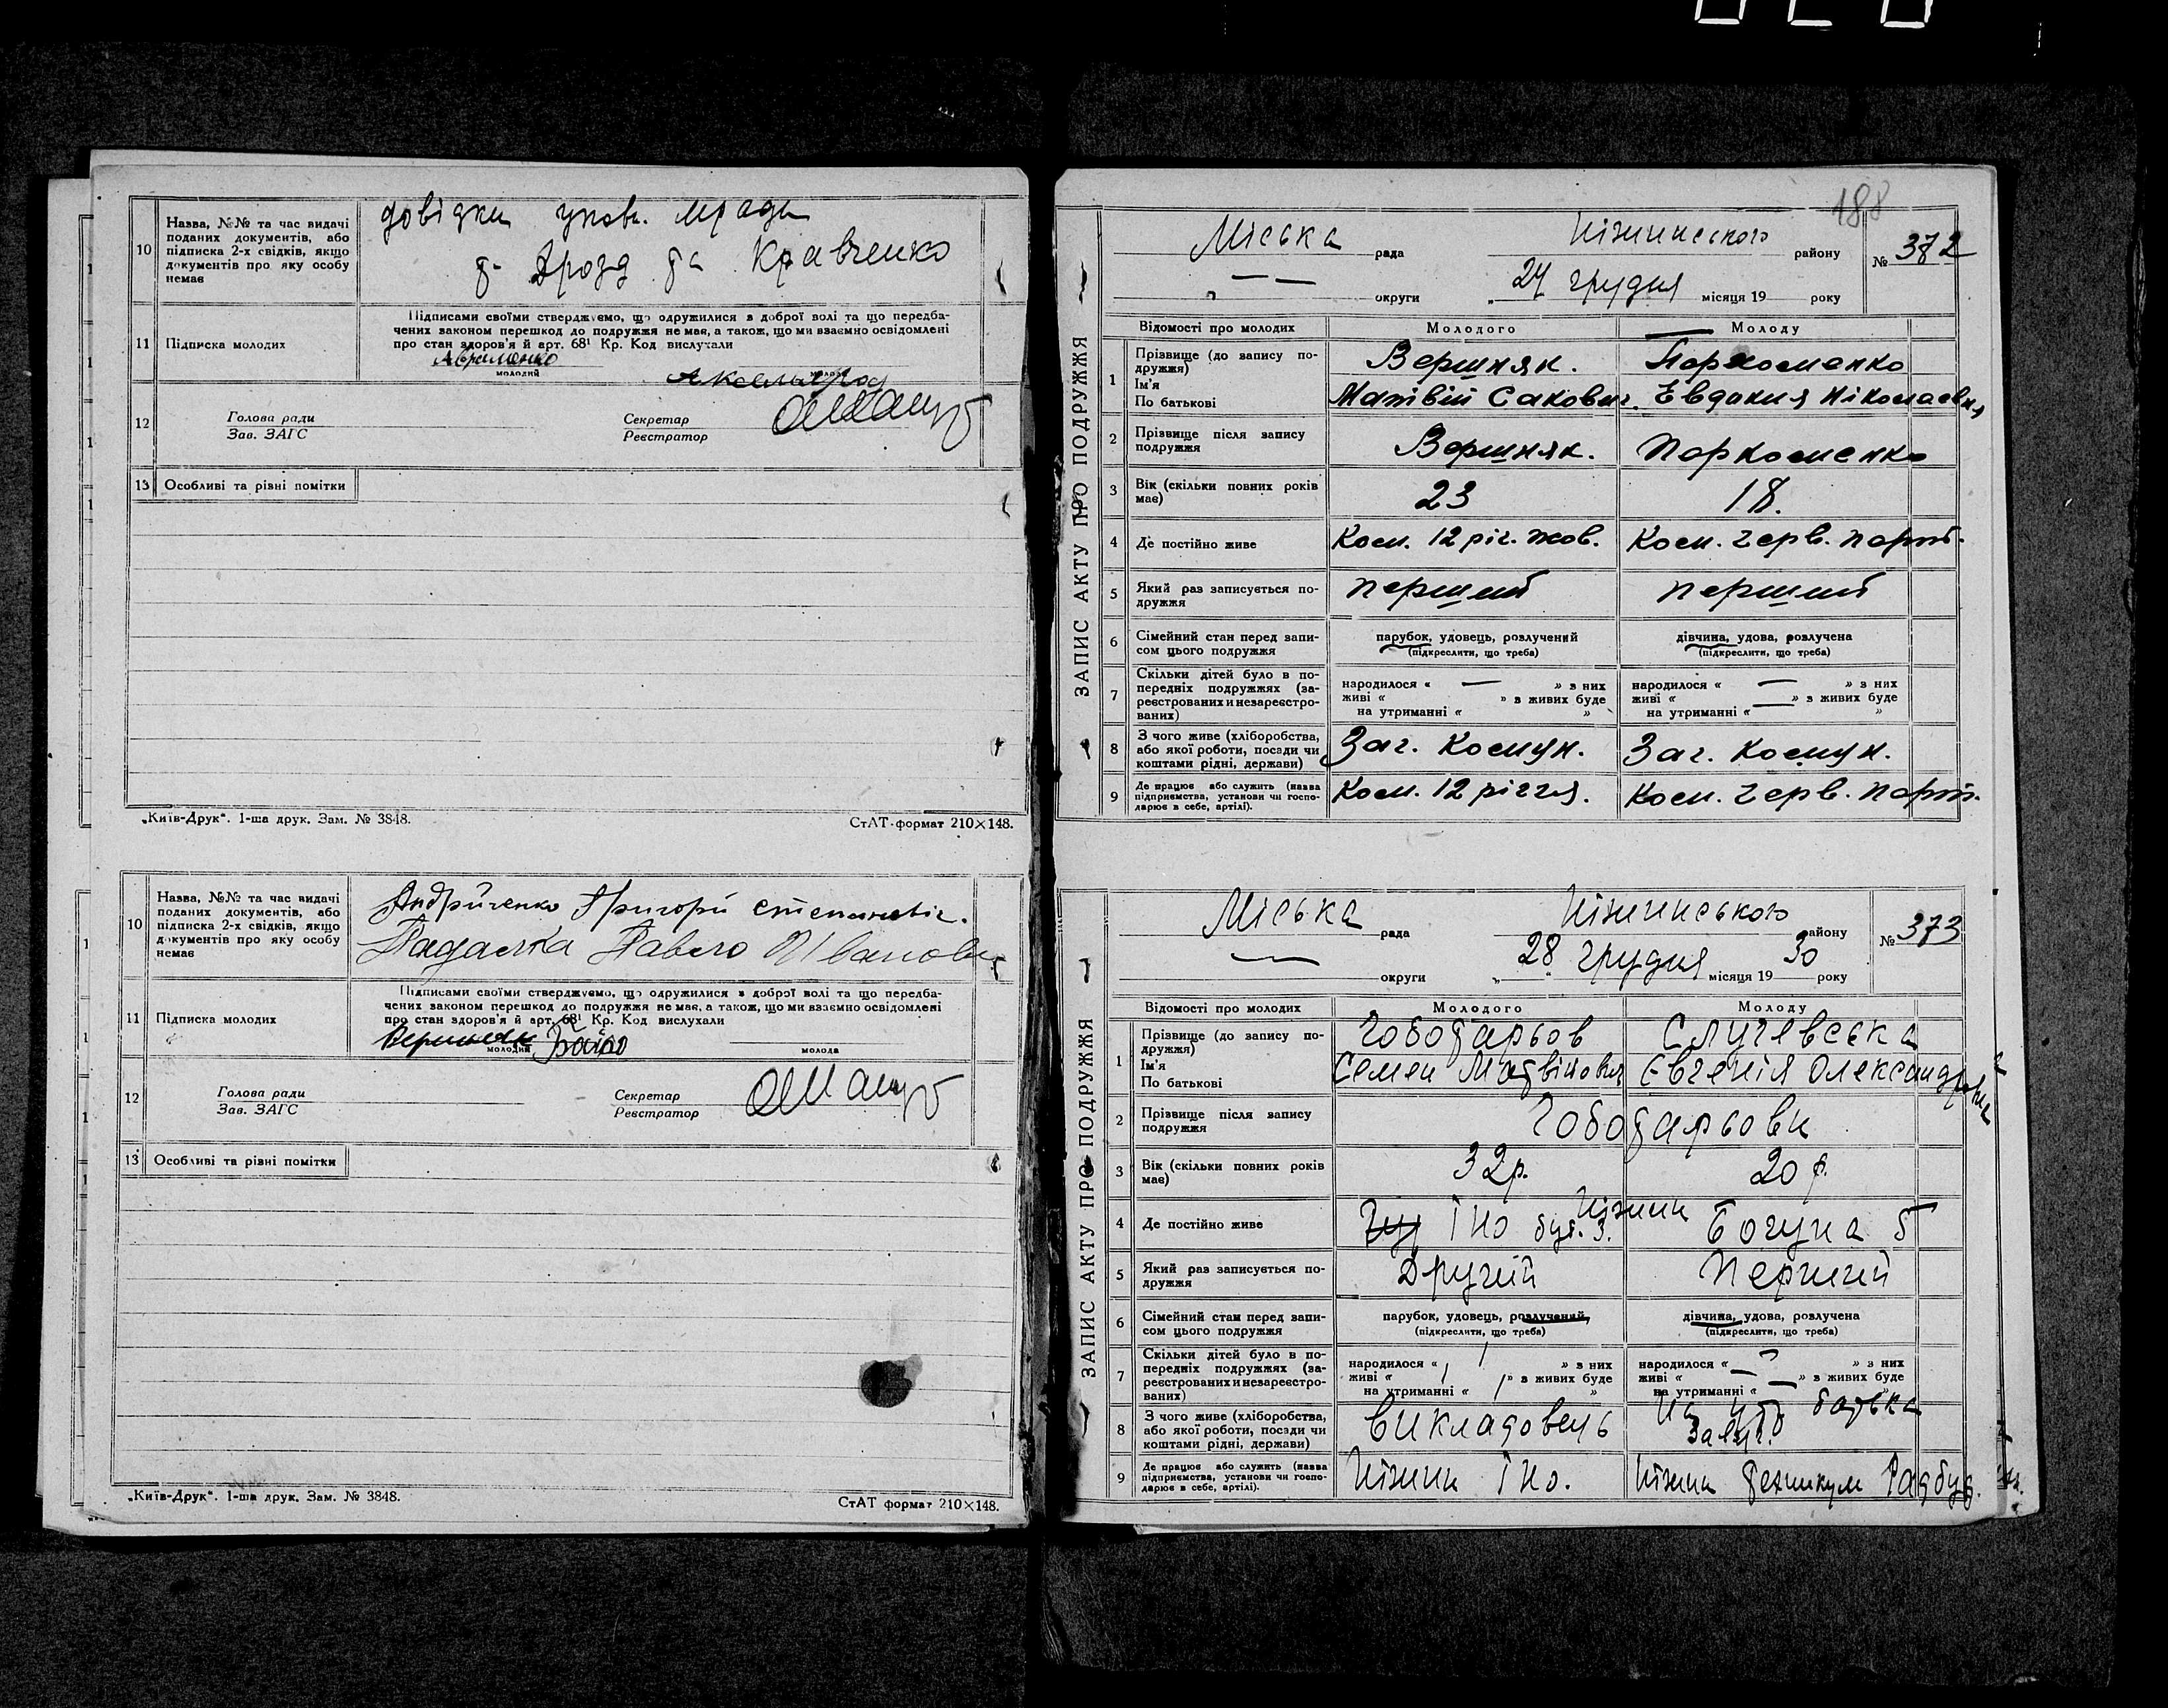 10
Назва, №№ та час видачі
поданих документів, або
підписка 2-х свідків, якщо
документів про яку особу
немає
довідки упов. мради
т. Дрозд та Кравченко
11
Підписка молодих
Підписами своїми стверджуємо, що одружилися з доброї волі та що передба-
чених законом перешкод до подружжя не має, а також, що ми взаємно освідомлені
про стан здоров'я й арт. 68¹ Кр. Код вислухали
Авраменко
молодий
молода
12
Голова ради
Зав. ЗАГС
Секретар
Реєстратор
13
Особливі та різні помітки
„Київ-Друк“. 1-ша друк. Зам. № 3848.
СтАТ-формат 210×148.
10
Назва, №№ та час видачі
поданих документів, або
підписка 2-х свідків, якщо
документів про яку особу
немає
Андрійченко Григорій степанович.
Падалка Павло Іванович
11
Підписка молодих
Підписами своїми стверджуємо, що одружилися з доброї волі та що передба-
чених законом перешкод до подружжя не має, а також, що ми взаємно освідомлені
про стан здоров'я й арт. 68¹ Кр. Код вислухали
Вершняк
молодий
молода
12
Голова ради
Зав. ЗАГС
Секретар
Реєстратор
13
Особливі та різні помітки
„Київ-Друк“. 1-ша друк. Зам. № 3848.
СтАТ формат 210×148.
188
ЗАПИС АКТУ ПРО ПОДРУЖЖЯ
Міська рада Ніжинського району № 372
— округи „24 грудня місяця 19 року
Відомості про молодих
Молодого
Молоду
1
Прізвище (до запису по-
дружжя)
Ім'я
По батькові
Вершняк.
Пархоменко
Матвій Сакович.
Евдокия Ніколаевна
2
Прізвище після запису
подружжя
Вершняк.
Пархоменко
3
Вік (скільки повних років
має)
23
18.
4
Де постійно живе
Ком. 12 річ. жов.
Ком. черв. парт.
5
Який раз записується по-
дружжя
перший
перший
6
Сімейний стан перед запи-
сом цього подружжя
парубок, удовець, розлучений
(підкреслити, що треба)
дівчина, удова, розлучена
(підкреслити, що треба)
7
Скільки дітей було в по-
передніх подружжях (за-
реєстрованих и незареєстро-
ваних)
народилося « — » з них
живі « » з живих буде
на утриманні « »
народилося « — » з них
живі « — » з живих буде
на утриманні « »
8
З чого живе (хліборобства,
або якої роботи, посади чи
коштами рідні, держави)
Заг. Комун.
Заг. Комун.
9
Де працює або служить (назва
підприємства, установи чи госпо-
дарює в себе, артілі).
Ком. 12 річчя.
Ком. черв. парт.
ЗАПИС АКТУ ПРО ПОДРУЖЖЯ
Міська рада Ніжинського району № 373
— округи „28“ грудня місяця 1930 року
Відомості про молодих
Молодого
Молоду
1
Прізвище (до запису по-
дружжя)
Ім'я
По батькові
Гоботарьов
Случевська
Семен Матвійович
Євгенія Олександровна
2
Прізвище після запису
подружжя
Гоботарьови
3
Вік (скільки повних років
має)
32 р.
20 р.
4
Де постійно живе
Ніжин
ІНО буд. 3.
Богуна 5
5
Який раз записується по-
дружжя
Другий
Перший
6
Сімейний стам перед запи-
сом цього подружжя
парубок, удовець, розлучений,
(підкреслити, що треба)
дівчина, удова, розлучена
(підкреслити, що треба)
7
Скільки дітей було в по-
передніх подружжях (за-
реєстрованих и незареєстро-
ваних)
народилося « 1 » з них
живі « 1 » з живих буде
на утриманні « 1 »
народилося « — » з них
живі « — » з живих буде
на утриманні « »
8
З чого живе (хліборобства,
або якої роботи, посади чи
коштами рідні, держави)
Викладовець
На батька
9
Де працює або служить (назва
підприємства, установи чи госпо-
дарює в себе, артілі).
Ніжин ІНО.
Ніжин технікум Радбуд.